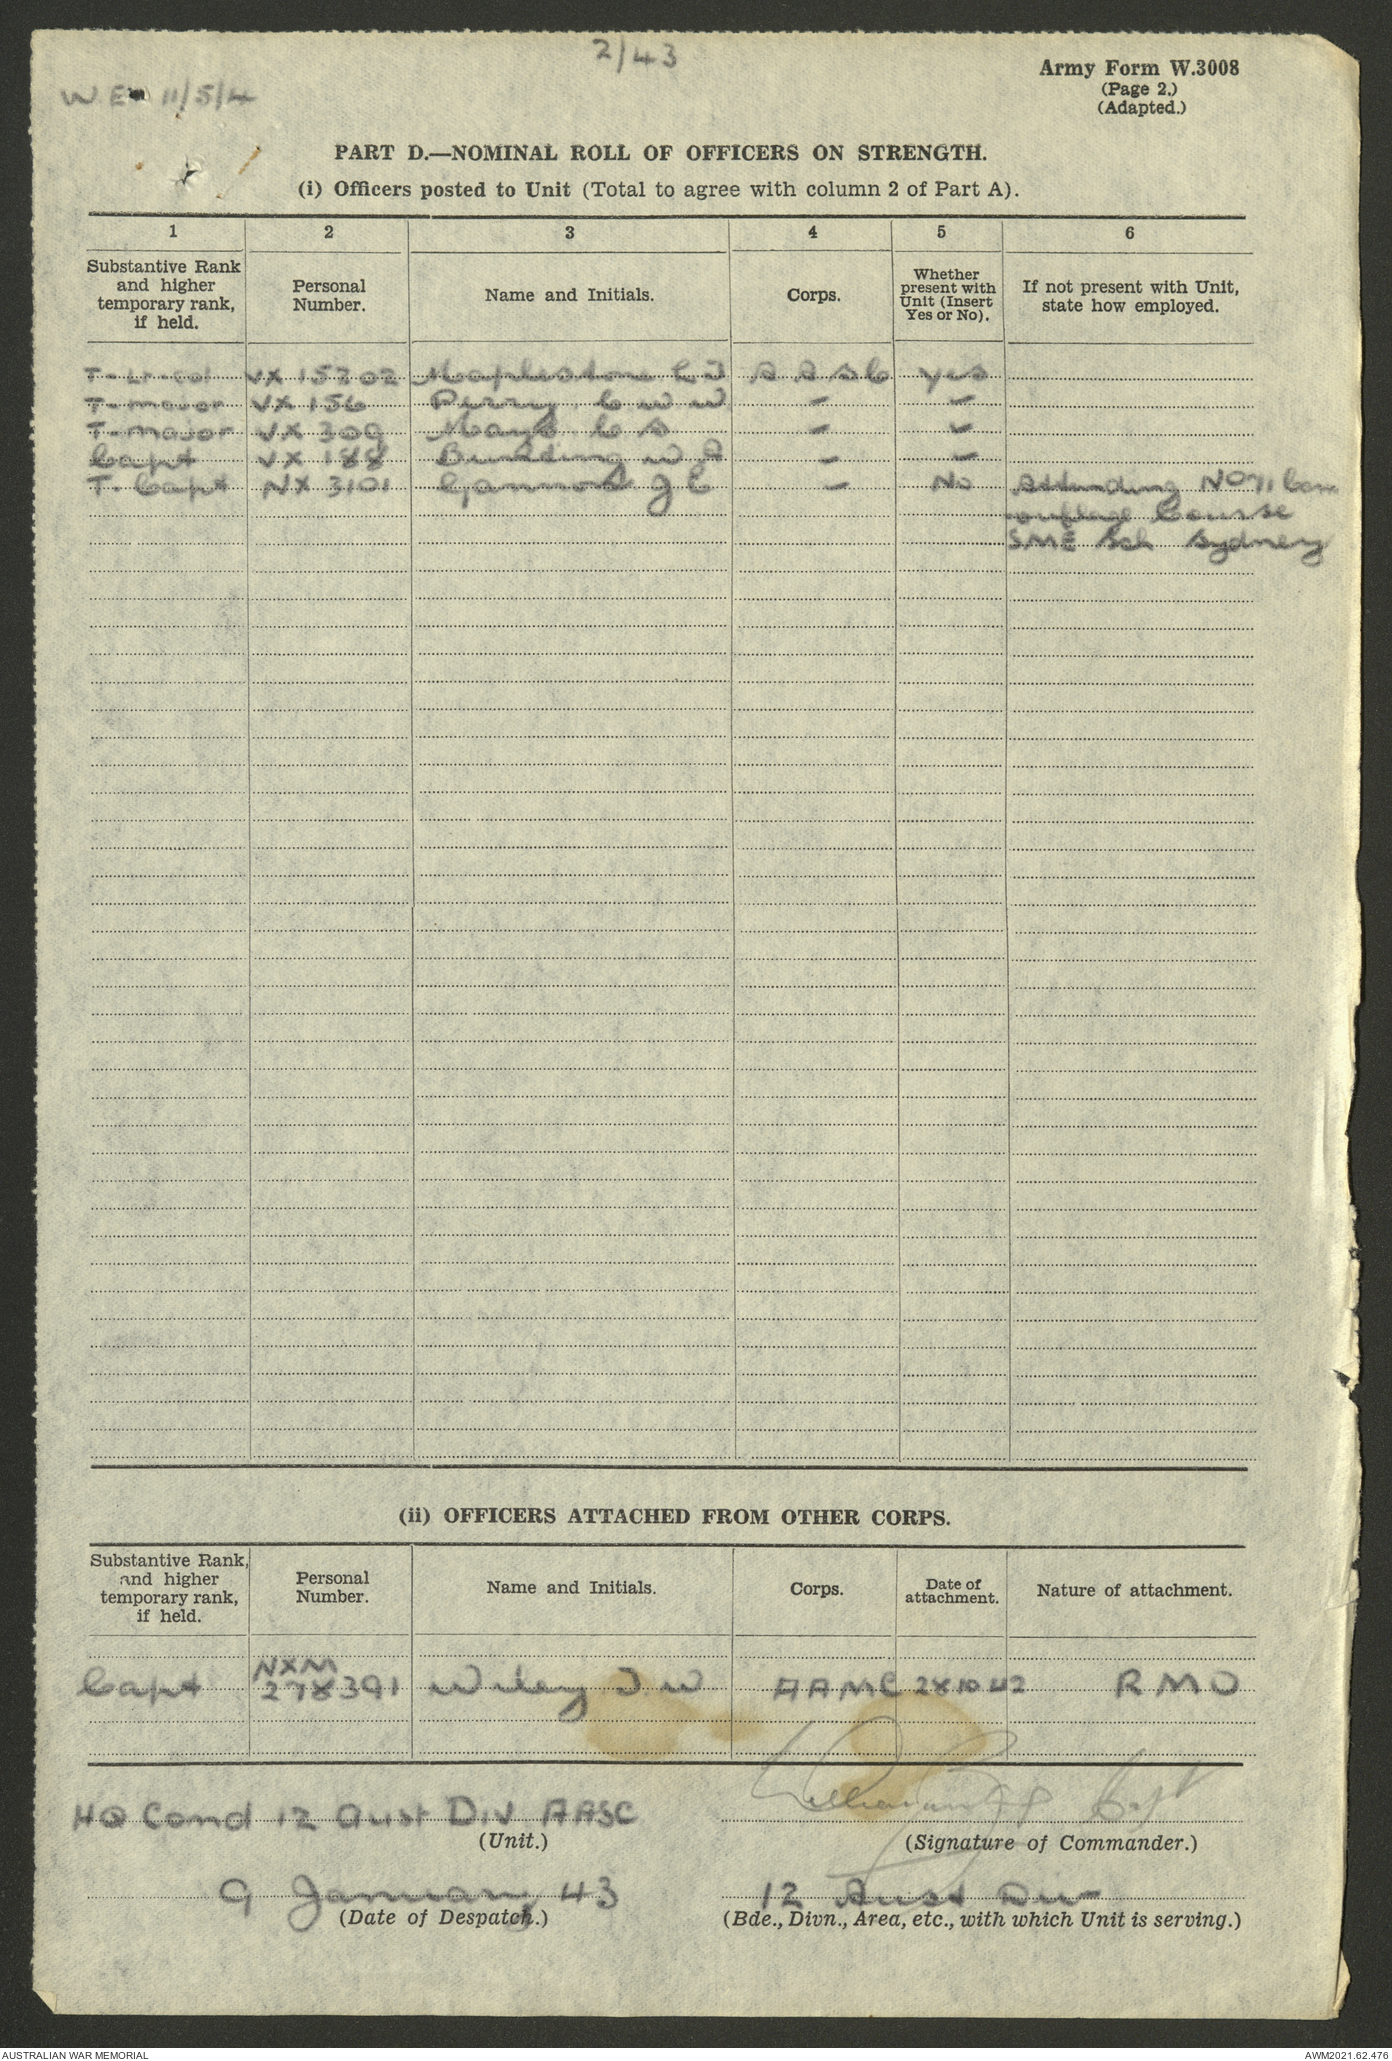 2/43
W.E. 11/5/4
Army Form W.3008
(Page 2.)
(Adapted.)
PART D.—NOMINAL ROLL OF OFFICERS ON STRENGTH.
(i) Officers posted to Unit (Total to agree with column 2 of Part A).
1 2 3 4 5 6
Substantive Rank and higher temporary rank, if held. Personal Number. Name and Initials. Corps. Whether present with Unit (Insert Yes or No). If not present with Unit, state how employed.
T-Lt-col VX 15202 Maplestone C J A A S C yes
T-major VX 156 Perry. C W W - -
T-major VX 309 Mays C S - -
Capt VX 188 W A - -
T-Capt NX 3101 J E - No Attending No 71 Cam
ouflage Course
SME Sch Sydney
(ii) OFFICERS ATTACHED FROM OTHER CORPS.
Substantive Rank, and higher temporary rank, if held. Personal Number. Name and Initials. Corps. Date of attachment. Nature of attachment.
NXM
Capt 278391 Wiley J. W. AAMC 28 10 42 R M O
HQ Comd 12 Aust Div AASC Capt
(Unit.) (Signature of Commander.)
9 January 43 12 Aust Div
(Date of Despatch.) (Bde., Divn., Area, etc., with which Unit is serving.)
AUSTRALIAN WAR MEMORIAL AWM2021.62.476